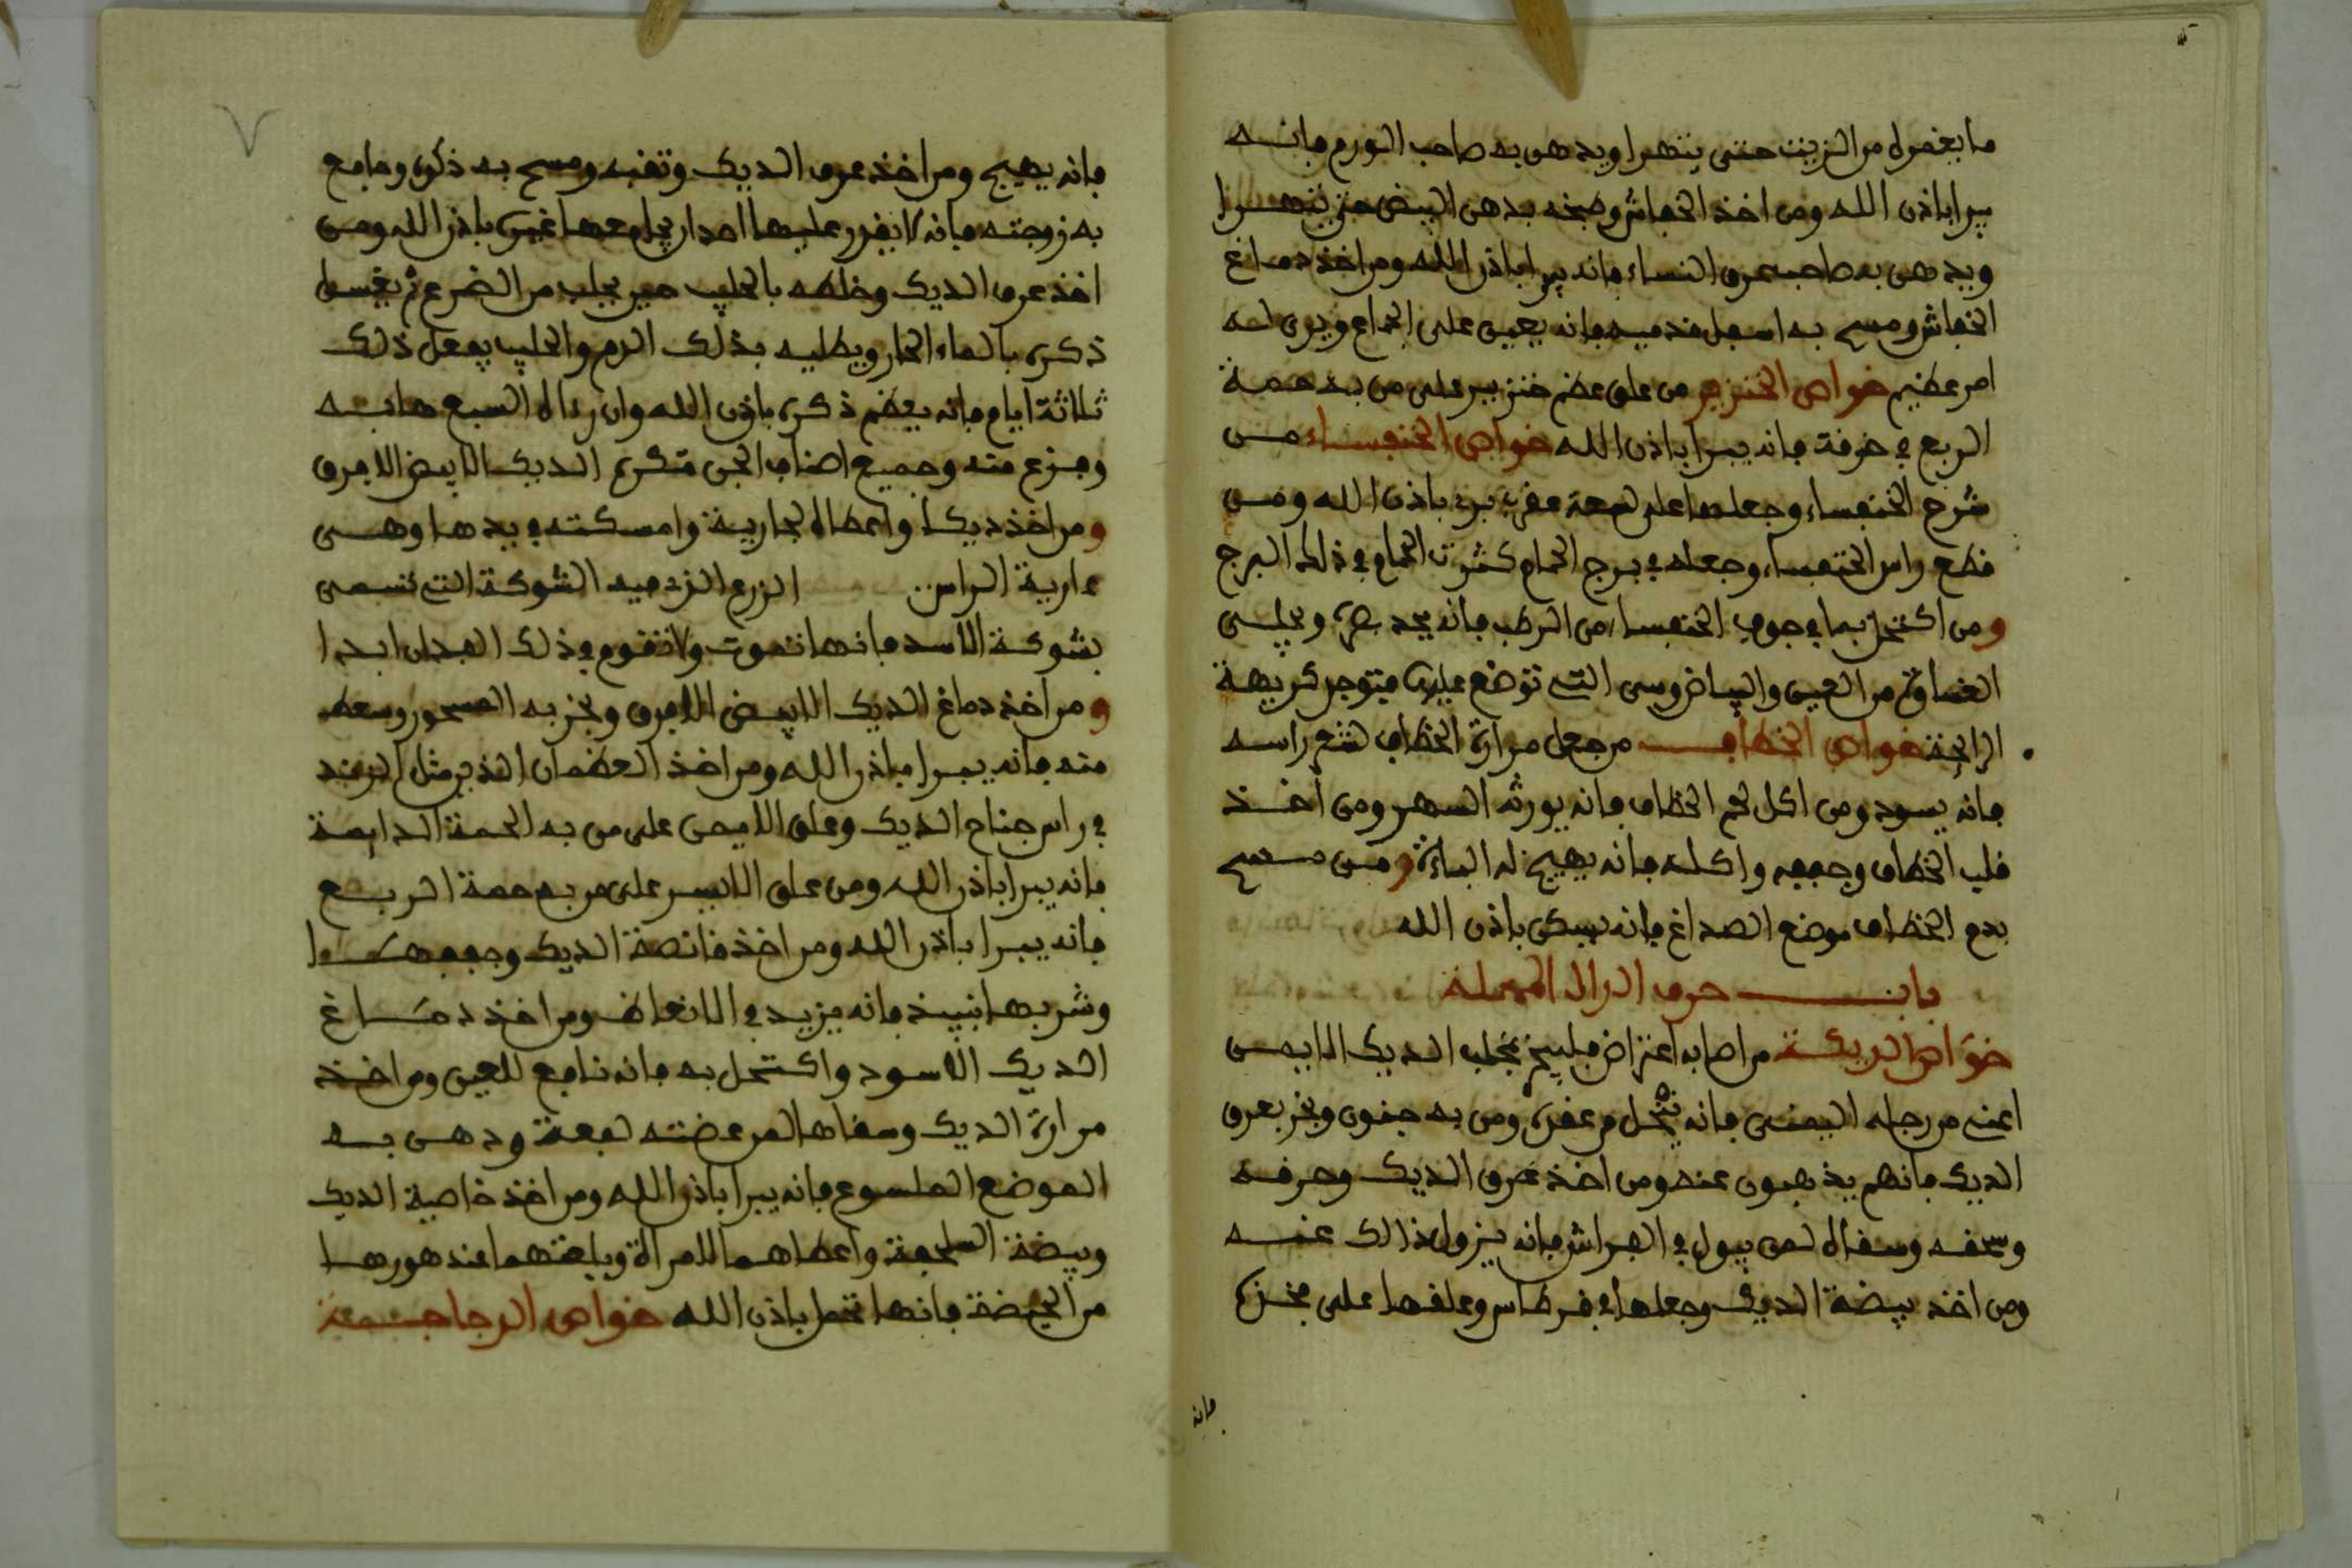 ما يغمره من الزيت حتى يتهرا ويدهن به صاحب الورم فانه
يبرا باذن الله ومن اخذ الخفاش وطبخه بدهن البيض حتى يتهرا
ويدهن به صاحب عرق النساء فانه يبرا باذن الله ومن اخذ دماغ
الخفاش ومسح به اسفل قدميه فانه يعين على الجماع ويرى له
امر عظيم خواص الخنزير من علق عظم خنزير على من به حمة
الربع في خرقة فانه يبرا باذن الله خواص الخنفساء من
شرح الخنفساء وجعلها على لسعة عقرب برء باذن الله ومن
قطع راس الخنفساء وجعله في برج الحمام كثرت الحمام في ذلك البرج
ومن اكتحل بما في جوف الخنفساء من الرطب فانه يحد بصره ويجلي
الغشاوة من العين والبياض وسى التي توضع عليها فيتوجد كريهة
الرايحة خواص الخطاف من جعل مرارة الخطاف لشعر راسه
فانه يسود ومن اكل لحم الخطاف فانه يورثه السهر ومن اخذ
قلب الخطاف وجففه واكله فانه يهيج له الباءة ومن مسح
بدم الخطاف موضع الصداغ فانه يسكن باذن الله
باب حرف الدال المهملة
خواص الديكة من اصابه اعتراض فليبخر بمخلب الديك الابيض
اعني من رجله اليمنى فانه ينحل من عقره ومن به جنون وبخر بعرف
الديك فانهم يذهبون عنه ومن اخذ عرف الديك وحرقه
وسحقه وسقاه لمن يبول في الفراش فانه يزول ذالك عنه
ومن اخذ بيضة الديك وجعلها في قرطاس وعلقها على فخذه
فانه
٧
فانه يهيج ومن اخذ عرف الديك وثقبه ومسح به ذكره وجامع
به زوجته فانه لا يقدر عليها احد ان يجامعها غيره باذن الله ومن
اخذ عرف الديك وخلطه بالحليب حين يحلب من الضرع ثم يغسل
ذكره بالماء الحار ويطليه بذلك الدم والحليب يفعل ذلك
ثلاثة ايام فانه يعظم ذكره باذن الله وان رءاه السبع هابه
وفزع منه وجميع اصناف الجن تكره الديك الابيض الافرق
ومن اخذ ديكا واعطاه لجارية وامسكته في يدها وهي
عارية الراس الزرع الذي فيه الشوكة التي تسمى
بشوكة الاسد فانها تموت ولا تقوم في ذلك الفدان ابدا
ومن اخذ دماغ الديك الابيض الافرق وبخر به المسحور وسعط
منه فانه يبرا باذن الله ومن اخذ العظمان الذي مثل
في راس جناح الديك وعلق الايمن على من به الحمة الدايمة
فانه يبرا باذن الله ومن علق الايسر على من به حمة الربع
فانه يبرا باذن الله ومن اخذ قانصة الديك وجففها
وشربها بنبيذ فانه يزيد في الانعاظ ومن اخذ دماغ
الديك الاسود واكتحل به فانه نافع للعين ومن اخذ
مرارة الديك وسقاها لمن عضته لفعة ودهن به
الموضع الملسوع فانه يبرا باذن الله ومن اخذ خاصية الديك
وبيضة السلحفة واعطاهما لامراة وبلعتهما عند طهورها
من الحيضة فانها تحمل باذن الله خواص الدجاجة